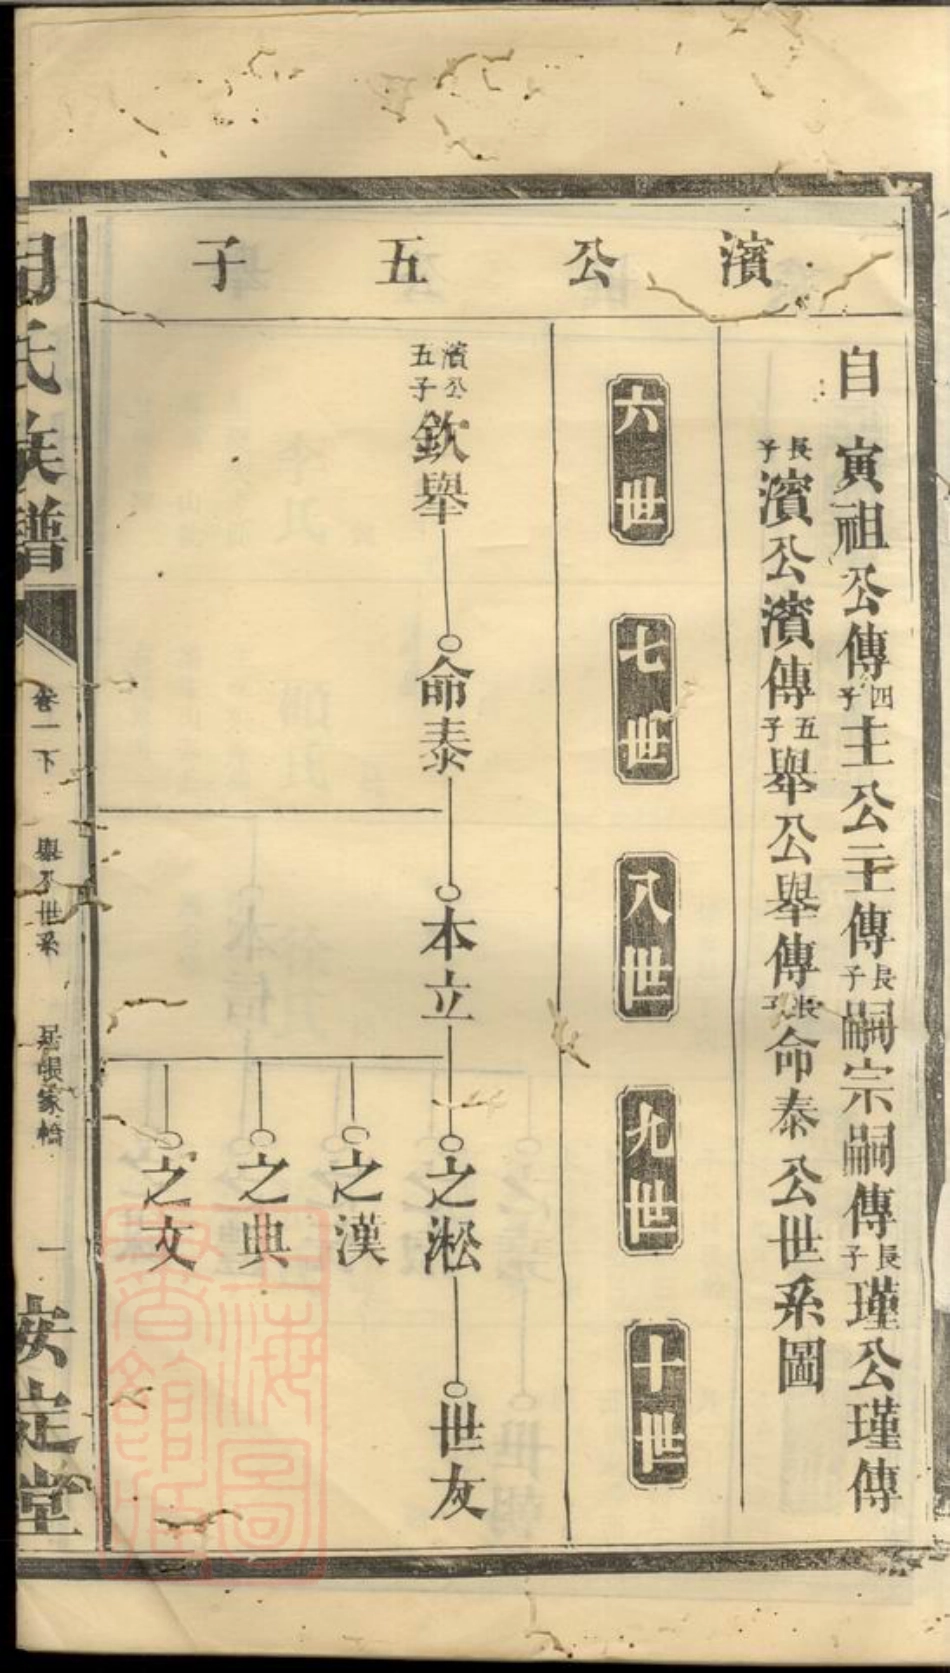 濱公五子
自
寅祖公傳四子主公主傳長子嗣宗嗣傳長子瑾公瑾傳
長子濱公濱傳五子舉公舉傳長子命泰公世系圖
六世
七世
八世
九世
十世
濱公五子欽舉
命泰
本立
之淞
之漢
之典
之文
世友
氏族譜
卷一下
舉公世系
居張家橋
一
安定堂
上海圖書館藏